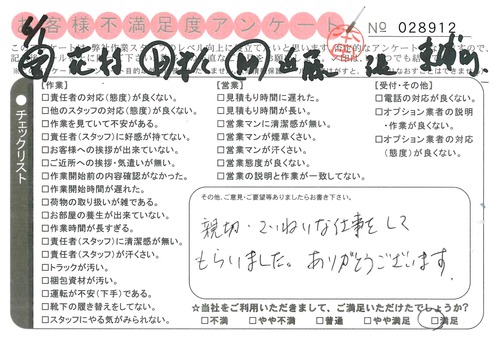 お客様不満足度アンケート
No 028912
【作業】
□責任者の対応(態度)が良くない。
□他のスタッフの対応(態度)が良くない。
□作業を見ていて不安がある。
□責任者(スタッフ)に好感が持てない。
□お客様への挨拶が出来ていない。
□ご近所への挨拶・気遣いが無い。
□作業開始前の内容確認がなかった。
□作業開始時間が遅れた。
□荷物の取り扱いが雑である。
□お部屋の養生が出来ていない。
□作業時間が長すぎる。
□責任者(スタッフ)に清潔感が無い。
□責任者(スタッフ)が汗くさい。
□トラックが汚い。
□梱包資材が汚い。
□運転が不安(下手)である。
□靴下の履き替えをしてない。
□スタッフにやる気がみられない。
【営業】
□見積もり時間に遅れた。
□見積もり時間が長い。
□営業マンに清潔感が無い。
□営業マンが煙草くさい。
□営業マンが汗くさい。
□営業態度が良くない。
□営業の説明と作業が一致してない。
【受付・その他】
□電話の対応が良くない。
□オプション業者の説明
・作業が良くない。
□オプション業者の対応
(態度)が良くない。
チェックリスト
その他、ご意見・ご要望等ありましたらお書き下さい。
親切・ていねいな仕事をして
もらいました。ありがとうございます。
☆当社をご利用いただきまして、ご満足いただけたでしょうか?
□不満 □やや不満 □普通 □やや満足 □満足